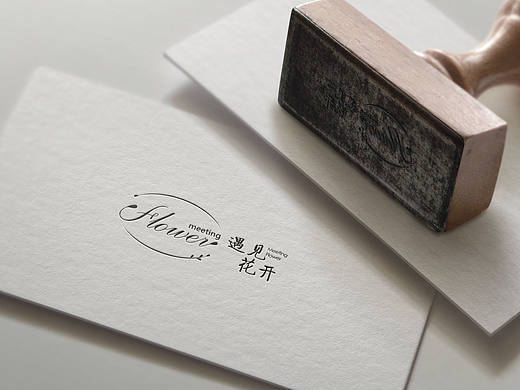 Flower
meeting
遇见
Meeting
Flower
花开